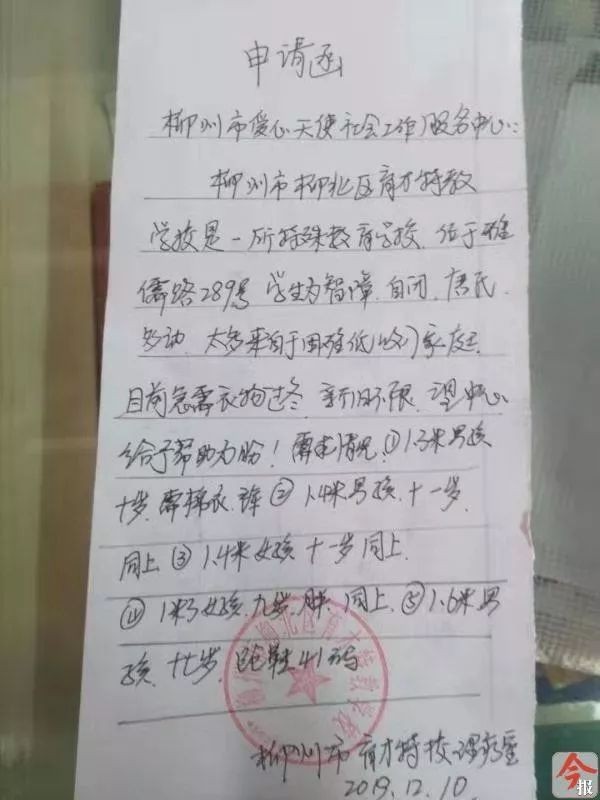 申请函
柳州市爱心天使社会工作服务中心:
柳州市柳北区育才特教
学校是一所特殊教育学校,位于雅
儒路289号 学生为智障、自闭、唐氏、
多动、大多来自于困难低收入家庭,
目前急需衣物过冬,新旧不限,望中心
给予帮助为盼!需求情况①1.3米男孩
十岁,需棉衣、裤②1.4米男孩,十一岁,
同上③1.4米女孩十一岁同上
④1米3女孩,九岁,同上⑤1.6米男
孩,十七岁,鞋41码
柳北区育才特教学校
柳州市育才特校
2019.12.10
今报